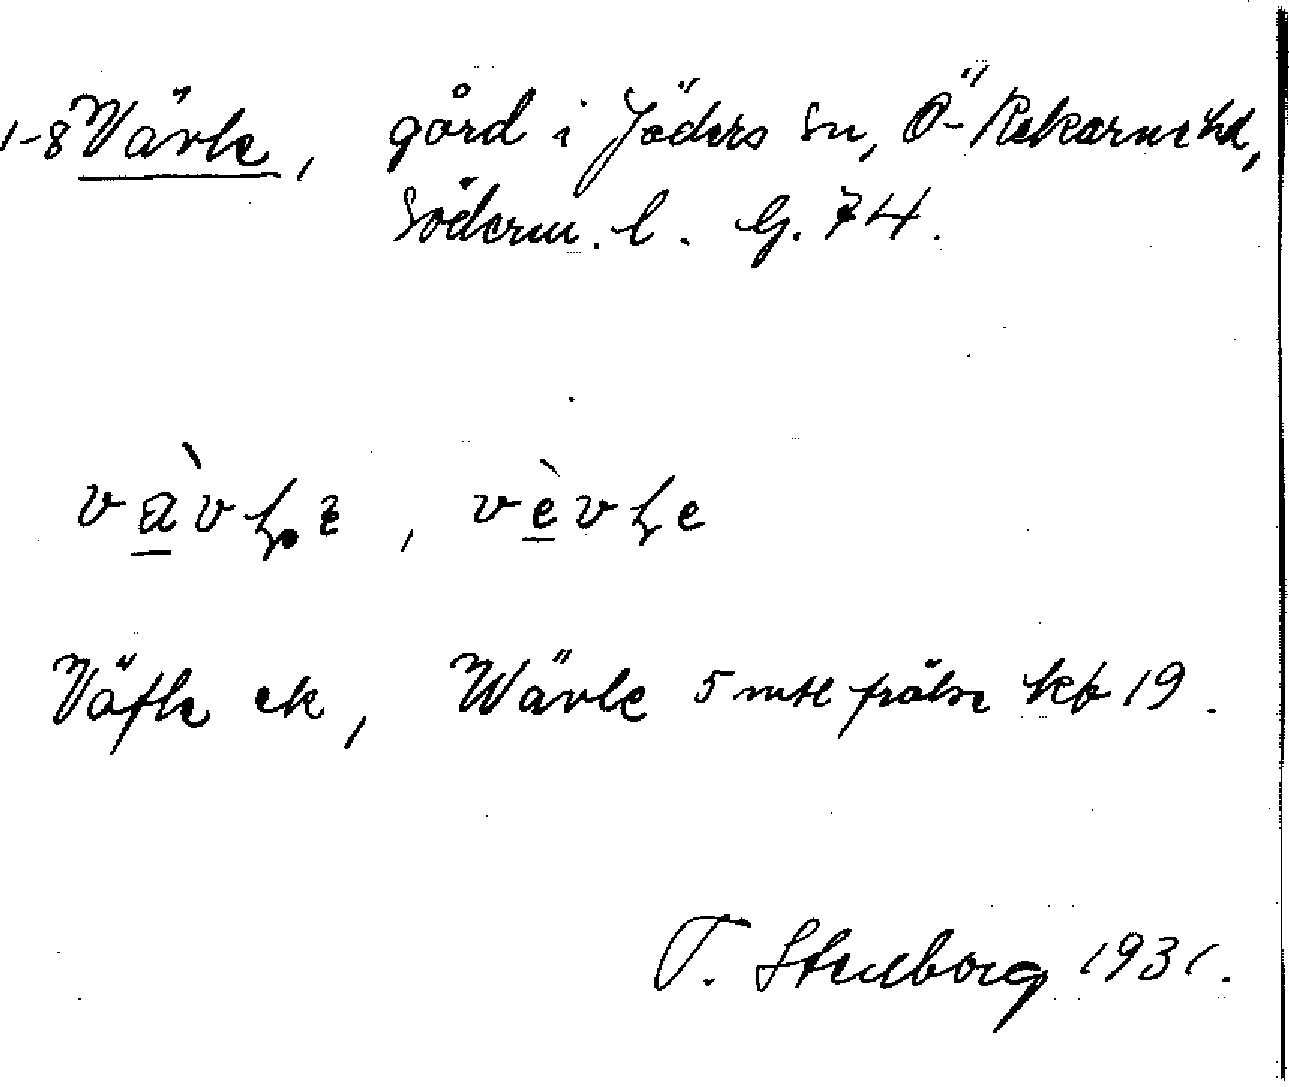 1-8 Vävle, gård i Jäders sn, Ö-Rekarne hd,
Söderm. l. G. 74.
Väfle ek, Wävle 5 mtl frälse kb 19.
T. Stenborg 1931.